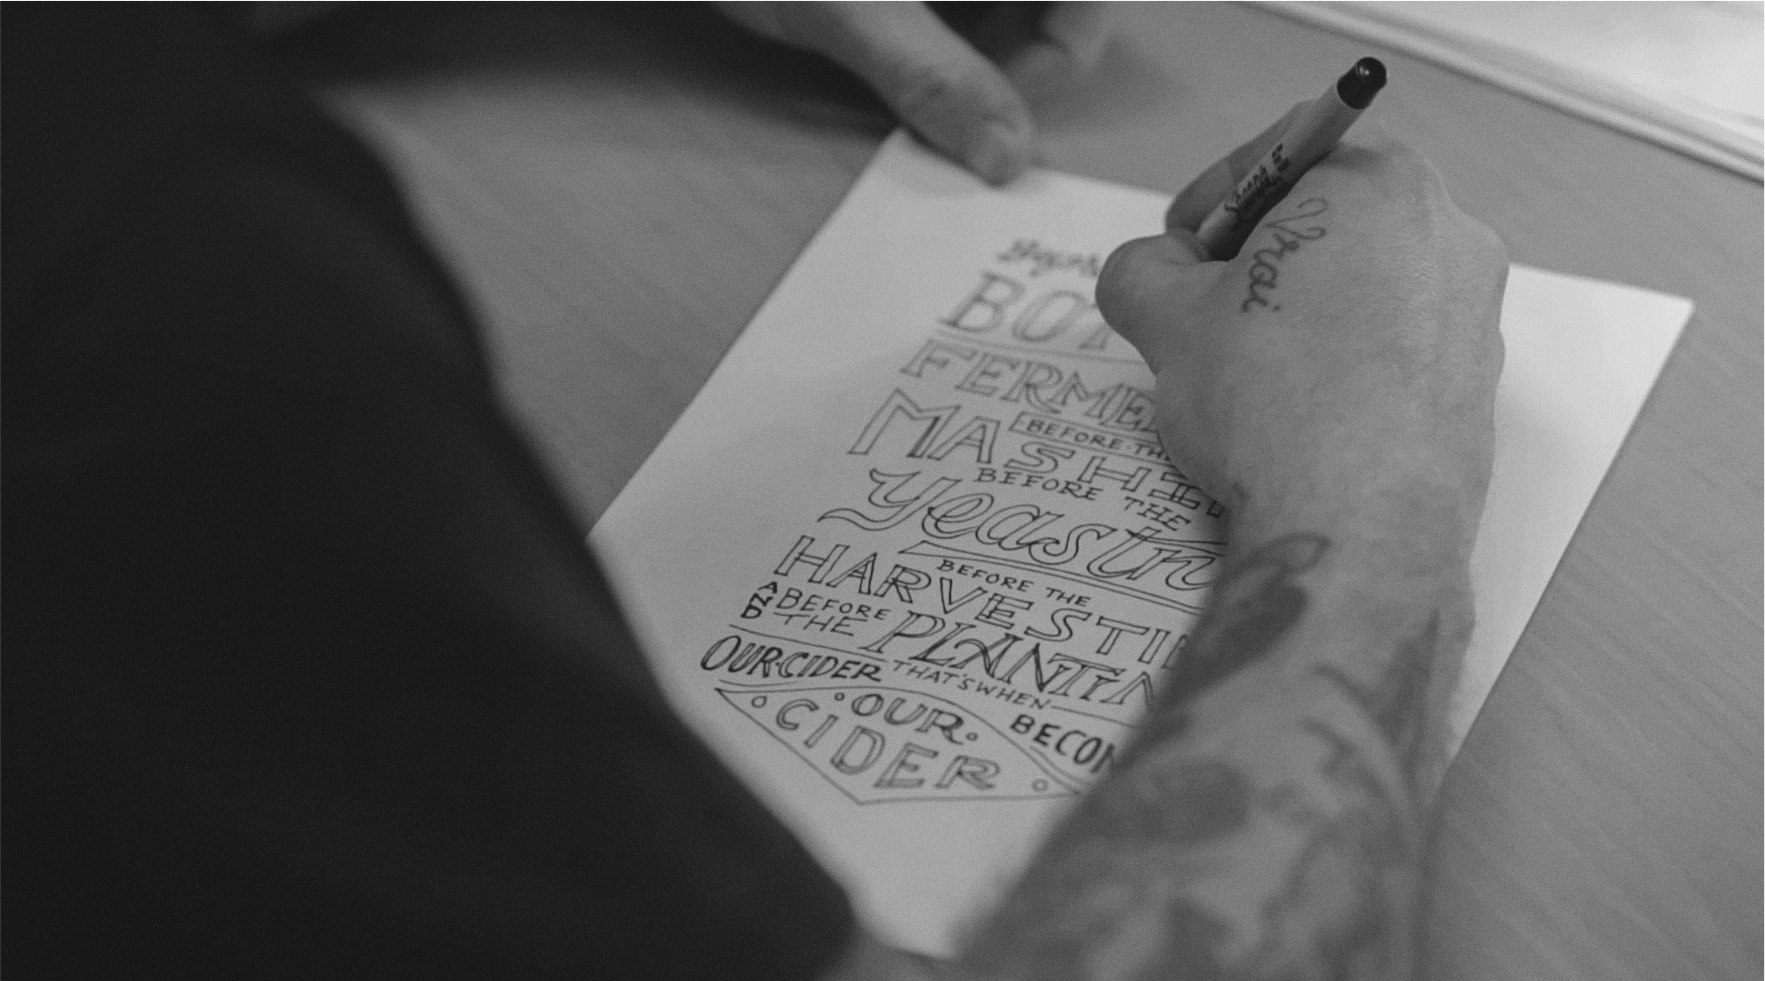 BOT
FERME
BEFORE THE
MASHI
BEFORE THE
yeastn
BEFORE THE
HARVESTIN
AND BEFORE THE PLANTIN
OUR CIDER THAT'S WHEN
BECOM
OUR
CIDER